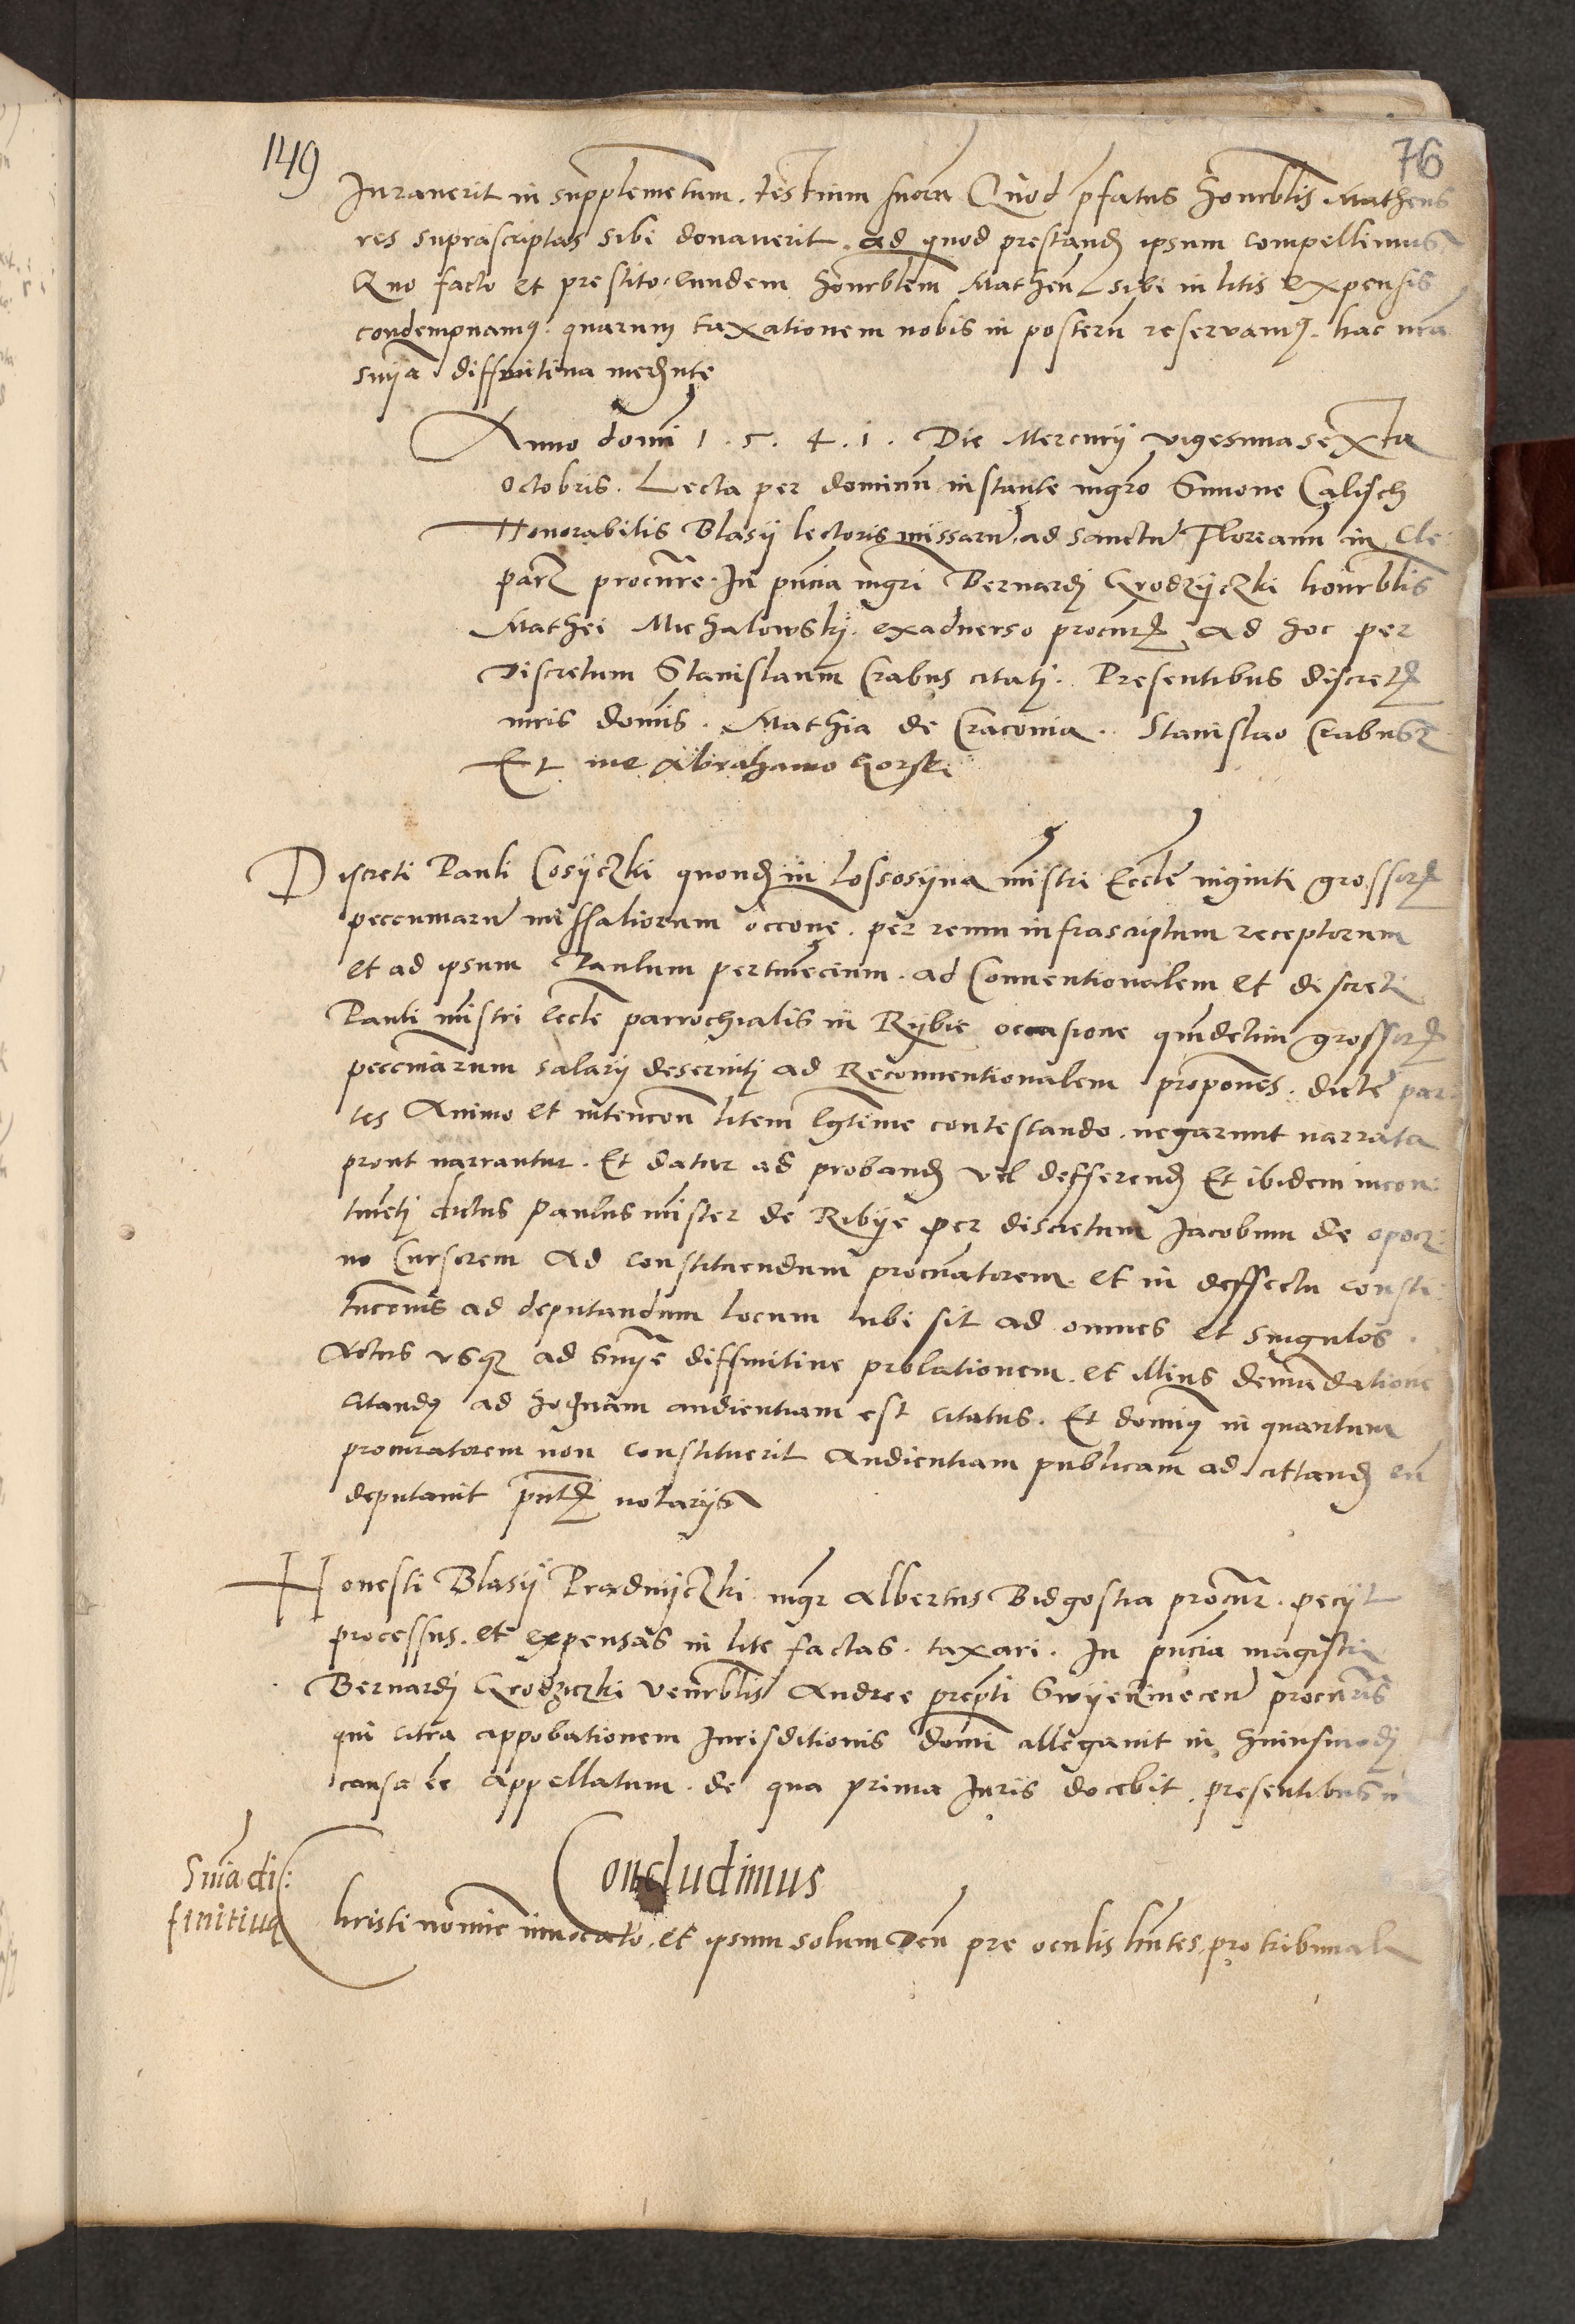 149
76
Iuraverit in supplemetum. testium suoru Quod pfatus honrblis Matheus
res suprascriptas sibi donaverit. ad quod prestand ipsum compellimus
Quo facto et prestito. eundem honrblem Matheu sibi in litis expensis
condempnamq. quarum taxationem nobis in posteru reservamq. hac nra
snija diffinitiva mednte
Anno domi 1. 5. 4. 1. Die Mercurij vigesimasexta
octobris. Lecta per dominu instante mgro Simone Calisch
Honorabilis Blasij lectoris missaru ad sanctu Floreanu in Cle
parz procure. In pncia mgri Bernardj Grodzyczki honrblis
Mathei Michalowskj. exadverso procur ad hoc per
Discretum Stanislaum Crabus citatj. Presentibus discret
viris domis. Mathia de Cracovia. Stanislao Crabus
Et me Abrahamo Gorski
Discreti Pauli Cosyczki quond in Lossosyna mistri Eccle viginti grossor
peccuniaru missaliorum occone. per reum infrascriptum receptorum
et ad ipsum Paulum pertinecium. ad Conventionalem et discreti
Pauli mistri eccle parrochialis in Rybie occasione quindecim grossor
peccuniarum salarij deservitj ad Reconventionalem propones. dicte par
tes Animo et intencon litem lgtime contestando. negarunt narrata
prout narrantur. Et datur ad proband vel defferend Et ibidem incon
tinetj dictus Paulus mister de Ribye per discretum Jacobum de opocz
no Cursorem Ad constituendum procuratorem. et in deffectu consti
tucionis ad deputandum locum ubi sit ad omnes et singulos
Actus usq ad snije diffinitive prolationem. et illius demadatione
citandq ad hodnam audientiam est citatus. Et domiq in quantum
procuratorem non constituerit Audientiam publicam ad cittand eu
deputavit pnt notarijs
Honesti Blasij Pradnyczki mgr Albertus Bidgostia procur. pecijt
processus. et expensas in lite factas. taxari. In pncia magistri
Bernardj Grodziczki venrblis Andree prepti Swyerzinecen procuris
qui citra appobationem Jurisditionis domi allegavit in huiusmodj
causa ee appellatum. de qua prima Juris docebit. presentibus
Concludimus
Snia di:
finitiva
Christi nomine invocato. et ipsum solum Deu pre oculis hntes pro tribunali